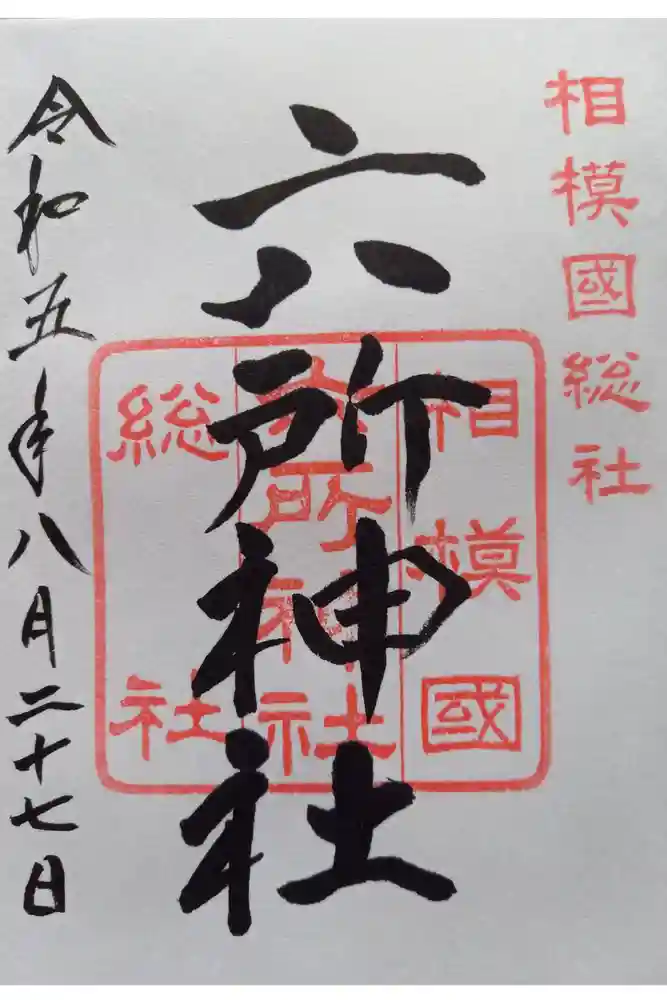 相模國総社
六所神社
相模國
六所神社
総社
令和五年八月二十七日